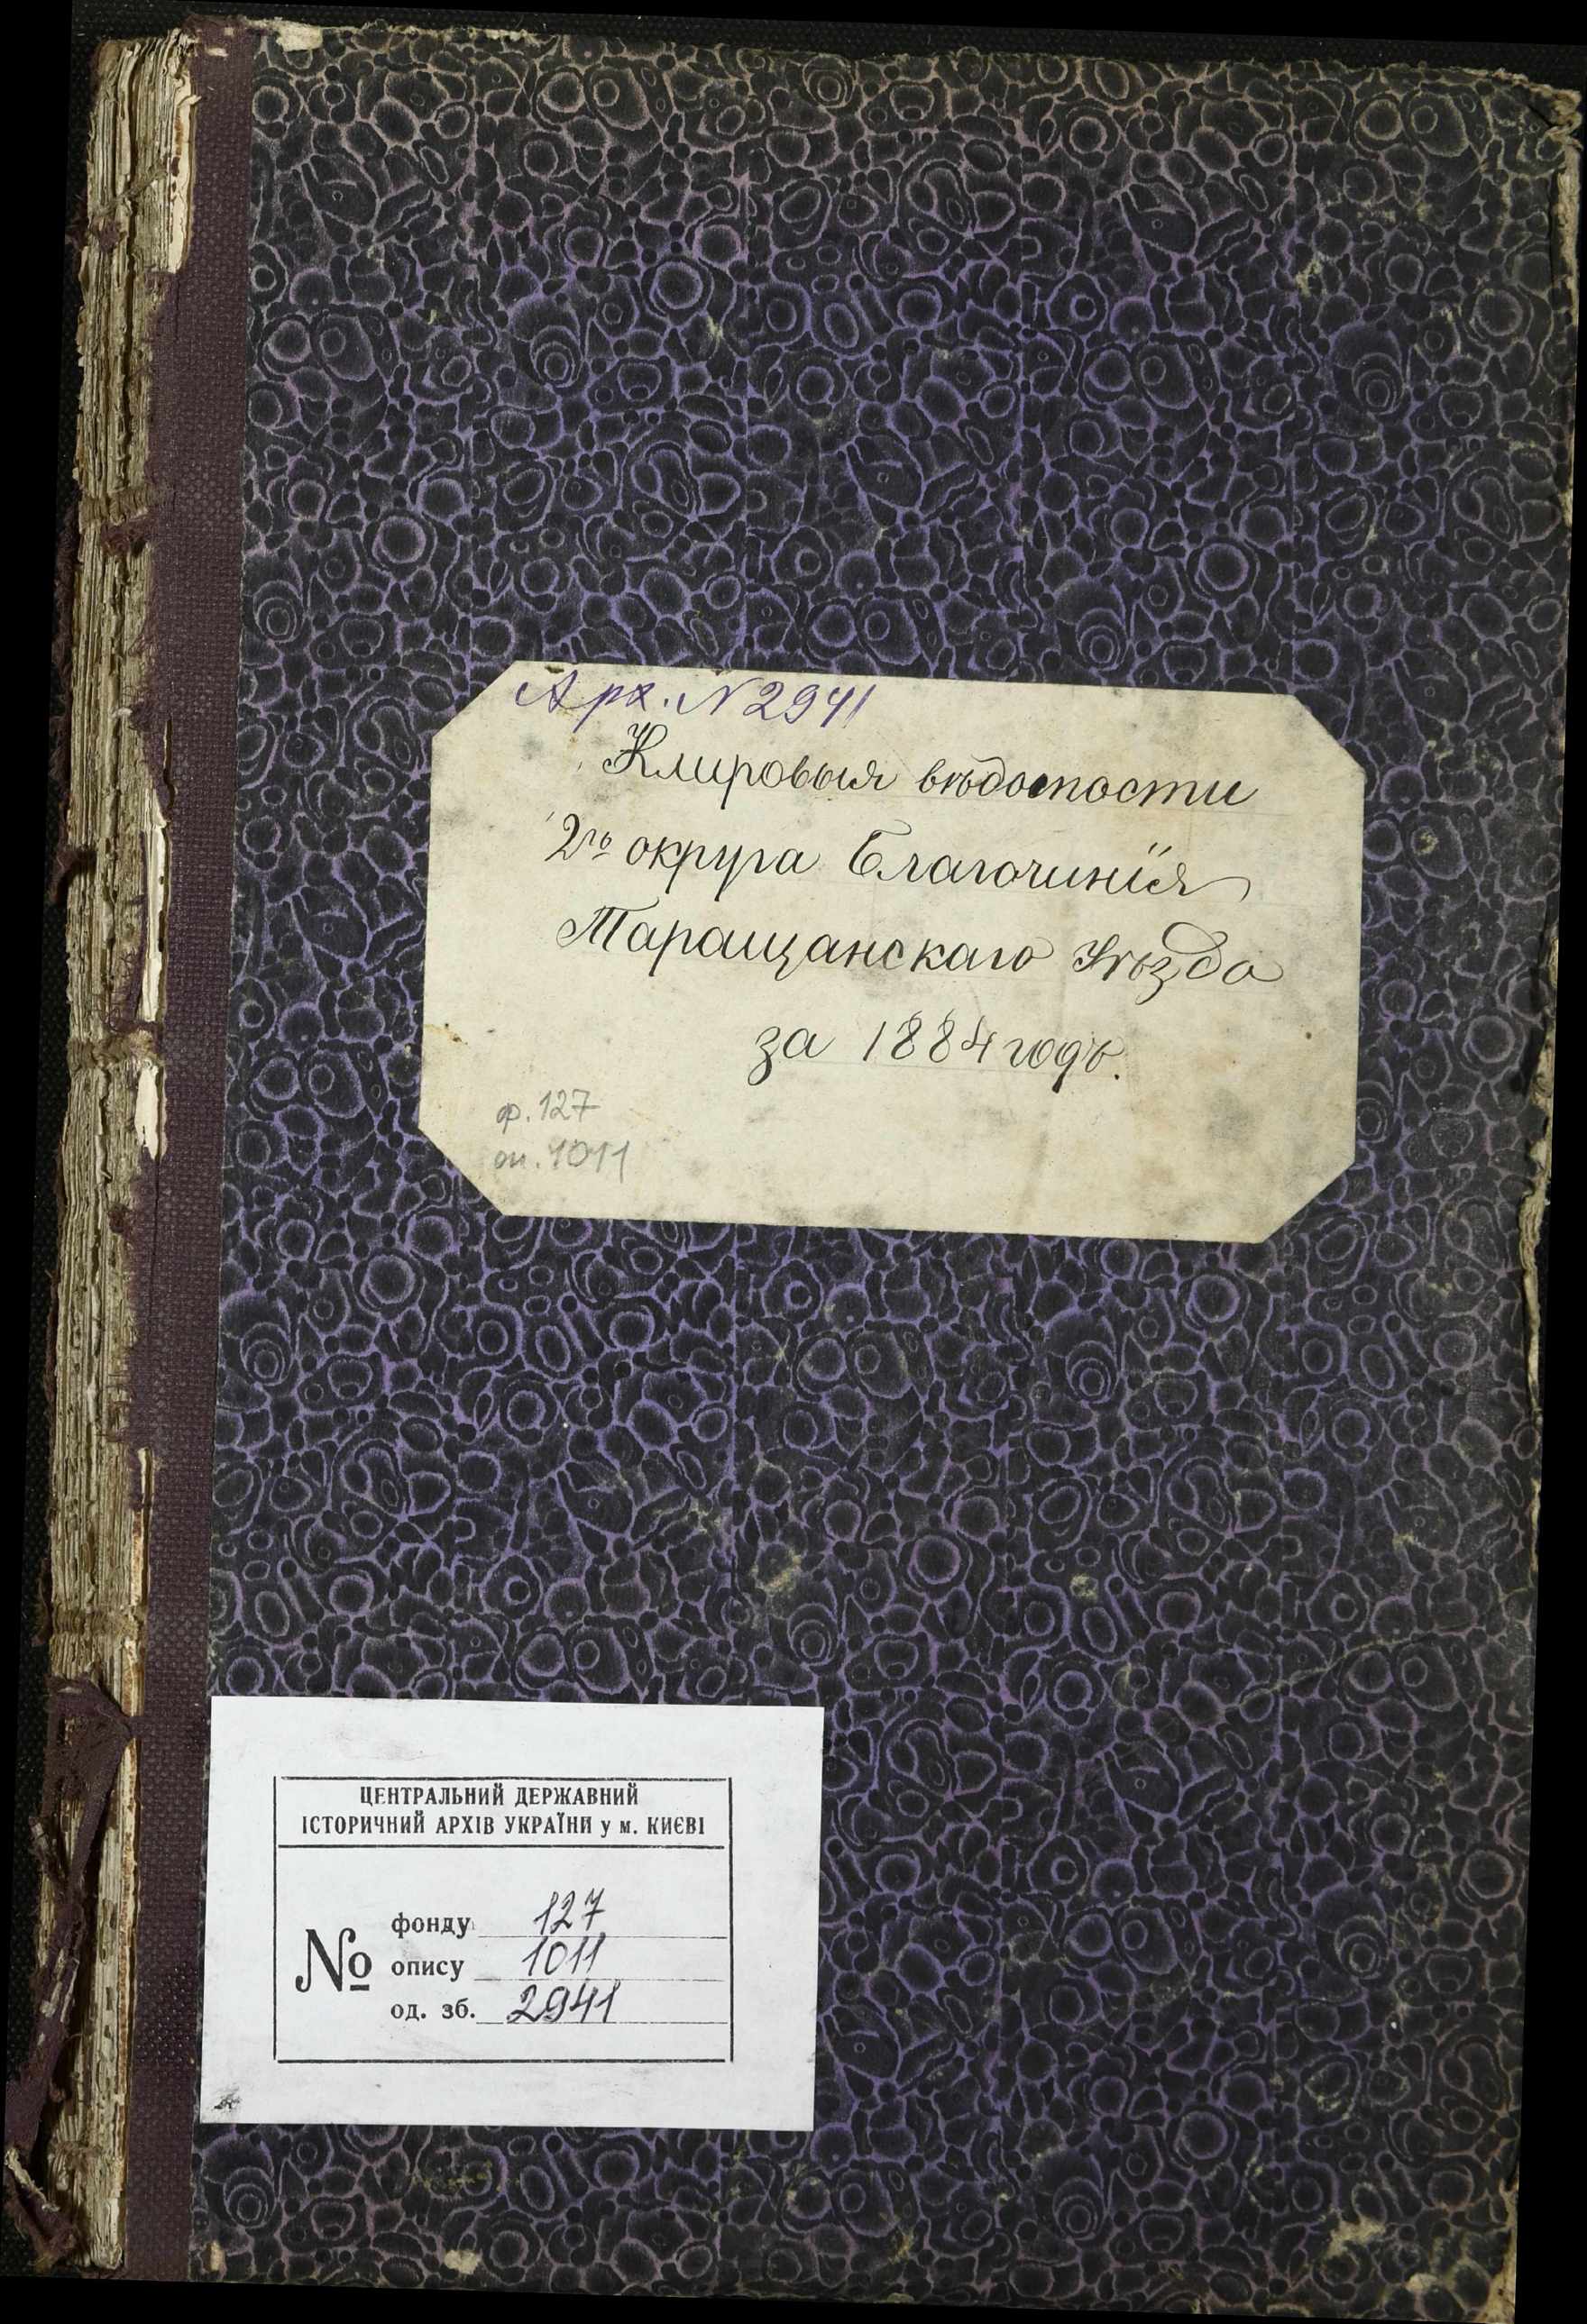 Арх. N 2941
Клировыя вѣдомости
2го округа Благочинія
Таращанскаго Уѣзда
за 1884 годъ.
ф. 127
оп. 1011
ЦЕНТРАЛЬНИЙ ДЕРЖАВНИЙ
ІСТОРИЧНИЙ АРХІВ УКРАЇНИ у м. КИЄВІ
№
фонду 127
опису 1011
од. зб. 2941